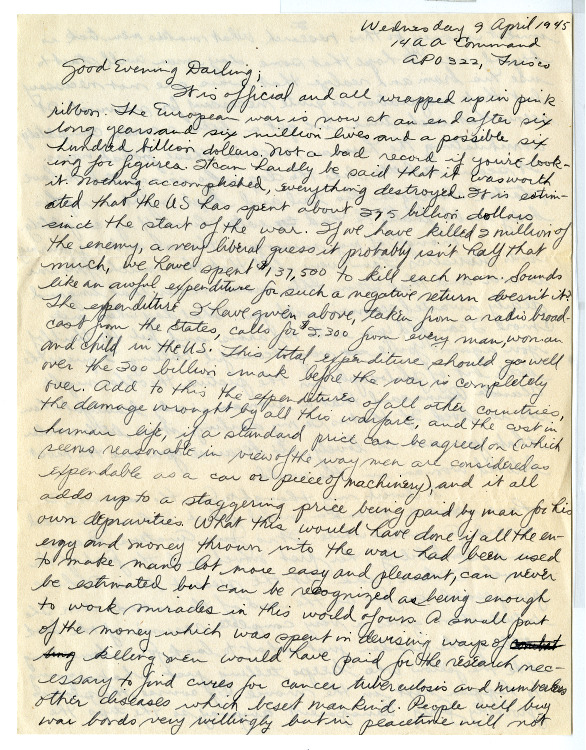 Wednesday 9 April 1945
14 A A Command
APO 322, Frisco
Good Evening Darling;
It is official and all wrapped up in pink
ribbon. The European war is now at an end after six
long years and six million lives and a possible six
hundred billion dollars. Not a bad record if you're look-
ing for figures. It can hardly be said that it was worth
it. Nothing accomplished, everything destroyed. It is estim-
ated that the US has spent about 275 billion dollars
since the start of the war. If we have killed 2 million of
the enemy, a very liberal guess it probably isn't half that
much, we have spent $137,500 to kill each man. Sounds
like an awful expenditure for such a negative return doesn't it?
The expenditure I have given above, taken from a radio broad-
cast from the States, calls for $2,300 from every man, woman
and child in the US. This total expenditure should go well
over the 300 billion mark before the war is completely
over. Add to this the expenditures of all other countries,
the damage wrought by all this warfare, and the cost in
human life, if a standard price can be agreed on (which
seems reasonable in view of the way men are considered as
expendable as a car or piece of machinery), and it all
adds up to a staggering price being paid by man for his
own depravities. What this would have done if all the en-
ergy and money thrown into the war had been used
to make man's lot more easy and pleasant, can never
be estimated but can be recognized as being enough
to work miracles in this world of ours. A small part
of the money which was spent in devising ways of
killing men would have paid for the research nec-
essary to find cures for cancer tuberculosis and numberless
other diseases which beset mankind. People will buy
war bonds very willingly but in peacetime will not